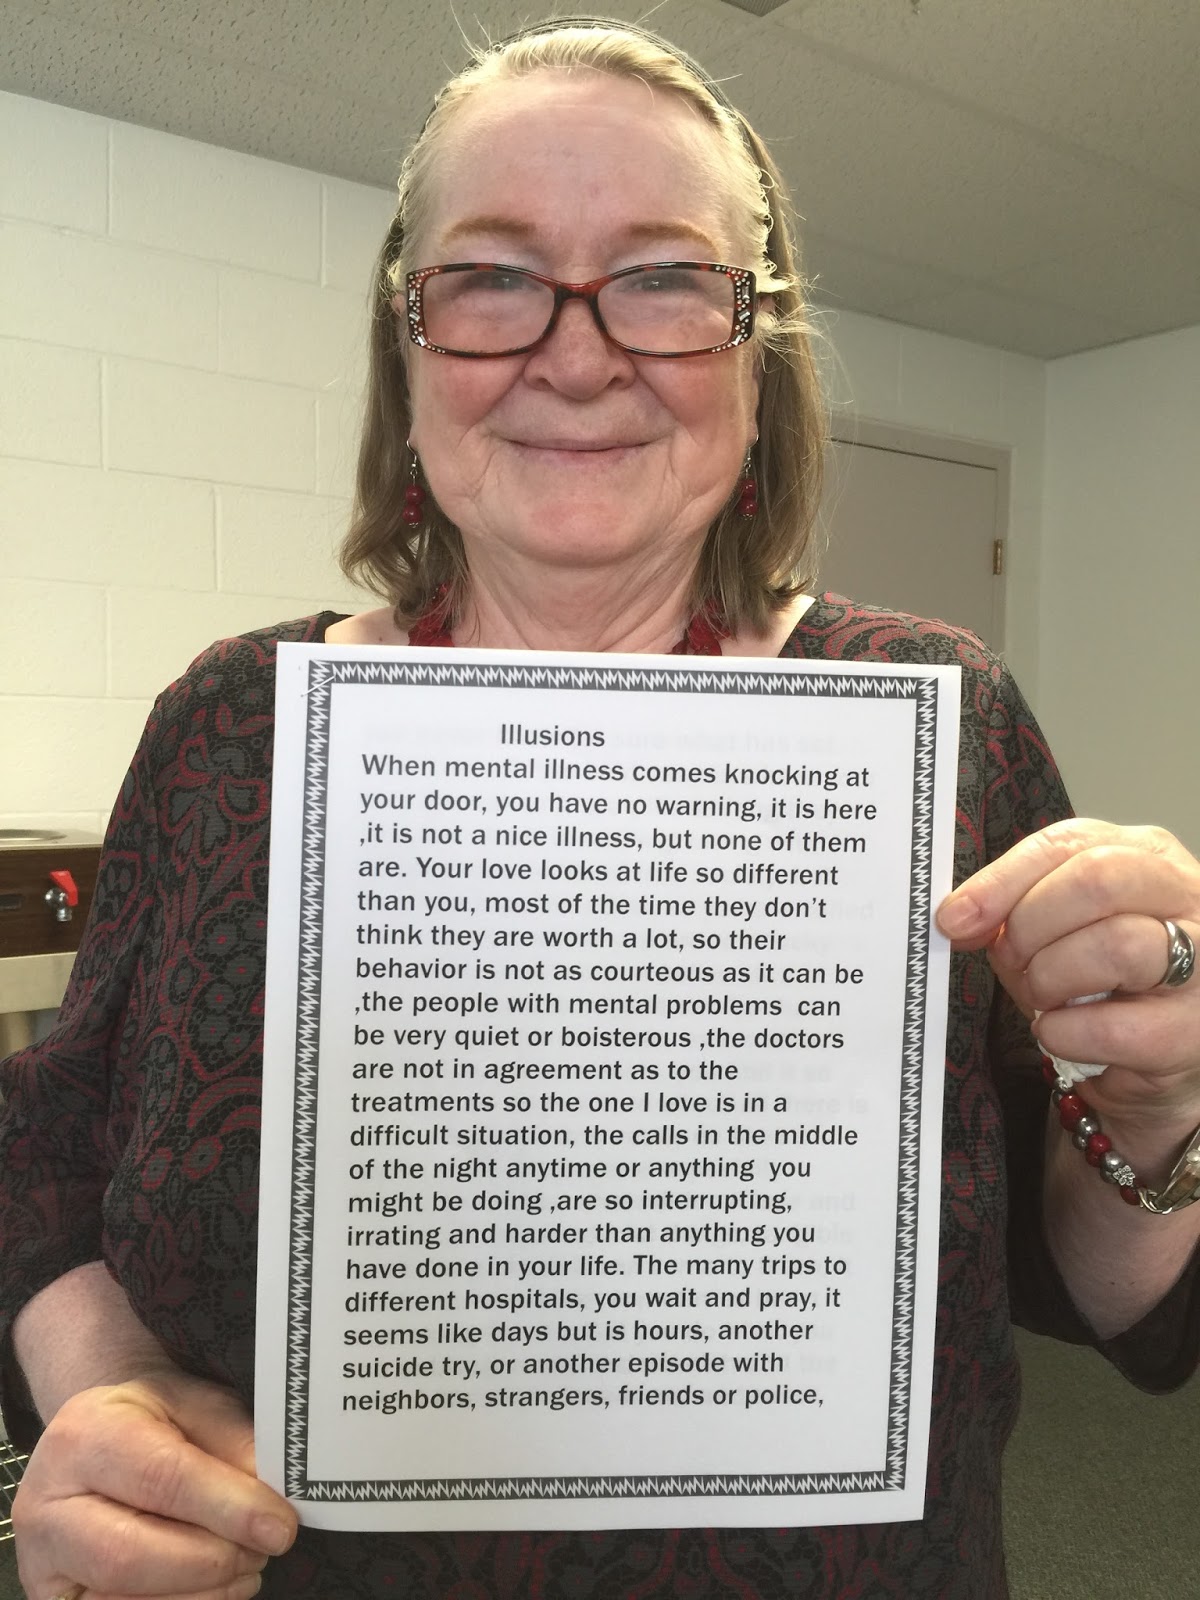 Illusions
When mental illness comes knocking at
your door, you have no warning, it is here
,it is not a nice illness, but none of them
are. Your love looks at life so different
than you, most of the time they don't
think they are worth a lot, so their
behavior is not as courteous as it can be
,the people with mental problems  can
be very quiet or boisterous ,the doctors
are not in agreement as to the
treatments so the one I love is in a
difficult situation, the calls in the middle
of the night anytime or anything  you
might be doing ,are so interrupting,
irrating and harder than anything you
have done in your life. The many trips to
different hospitals, you wait and pray, it
seems like days but is hours, another
suicide try, or another episode with
neighbors, strangers, friends or police,